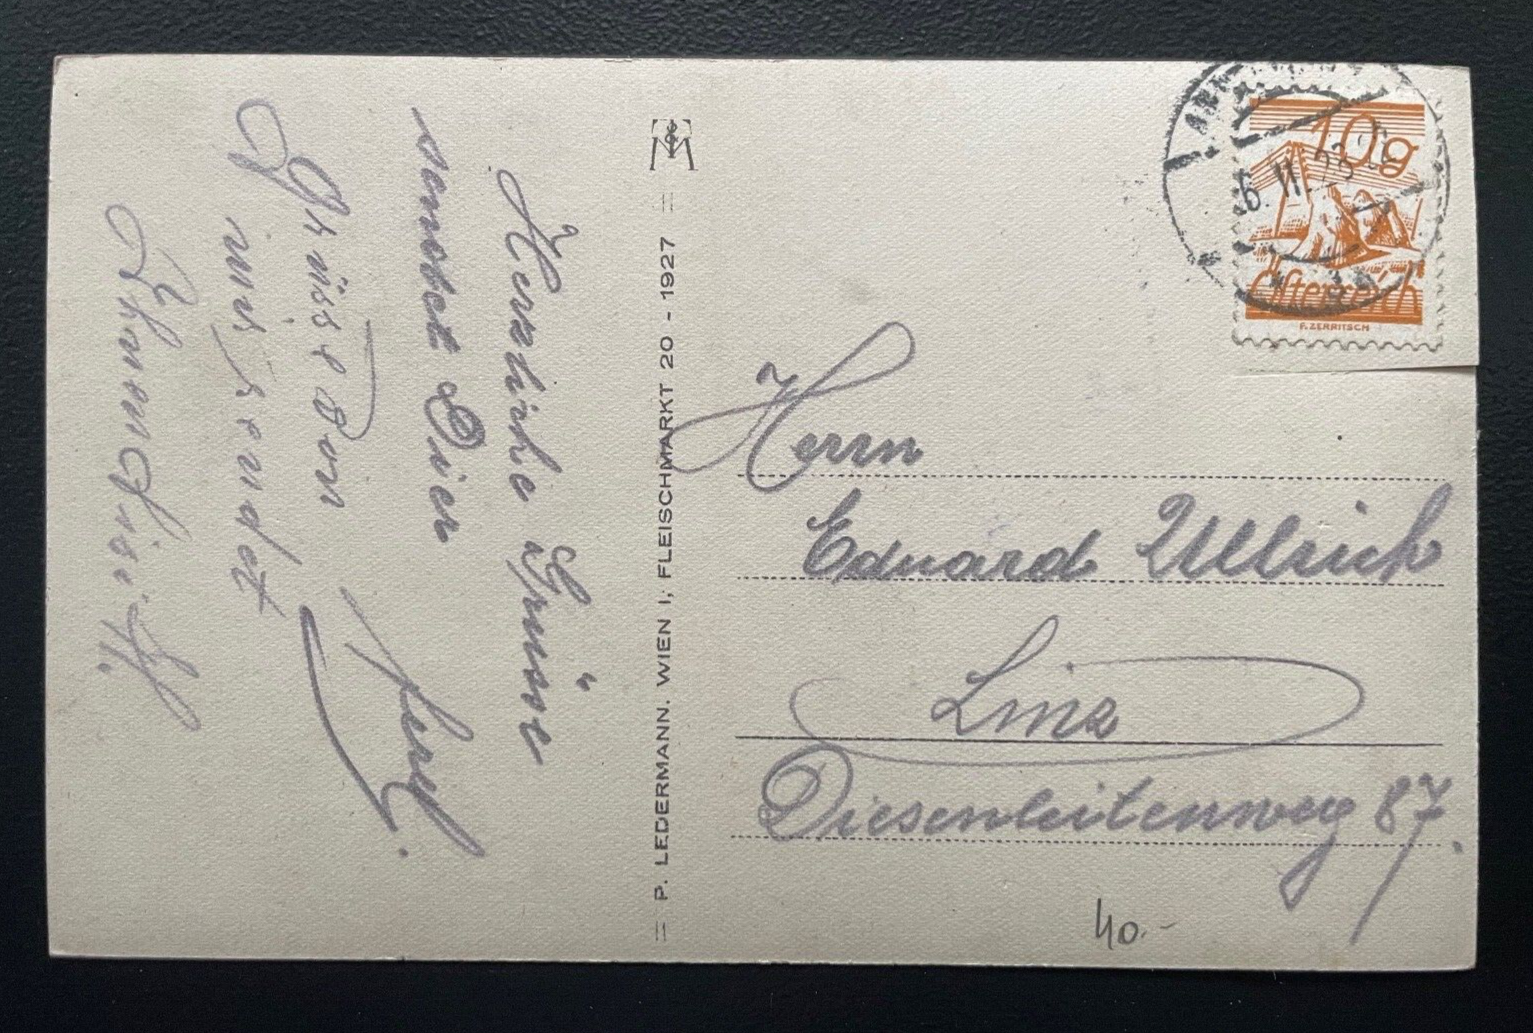 Herzliche Grüsse
sendet Dir
Ferdl.
Grüsse von
uns sendet
P. LEDERMANN. WIEN I; FLEISCHMARKT 20 - 1927
10g
Österreich
F. ZERRITSCH
Herrn
Eduard Ullrich
Linz
Diesenleitenweg 87.
40.-